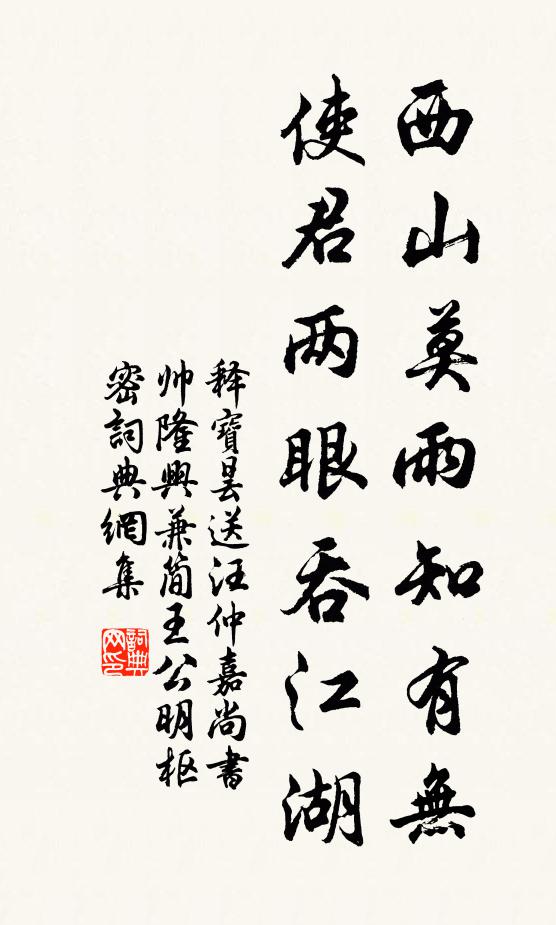 西山莫雨知有無
使君两眼吞江湖
释寶昙送汪仲嘉尚書
帅隆興兼简王公明枢
密詞典網集
詞典网印